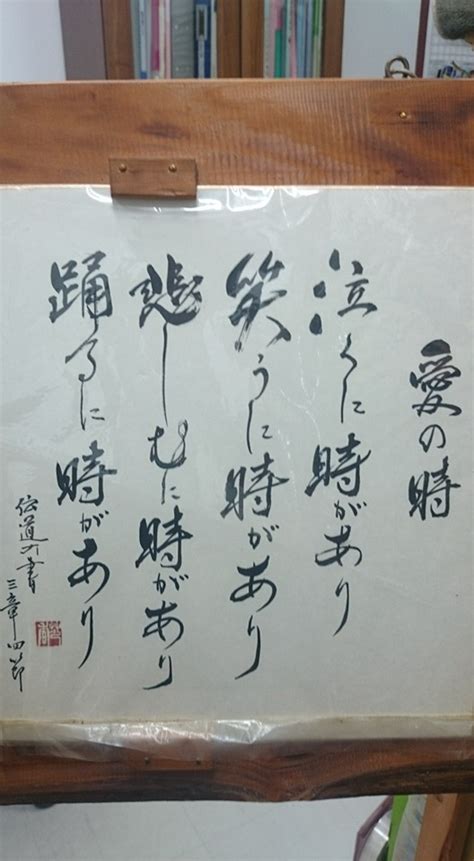 愛の時
泣くに時があり
笑うに時があり
悲しむに時があり
踊るに時があり
伝道の書 三章四節